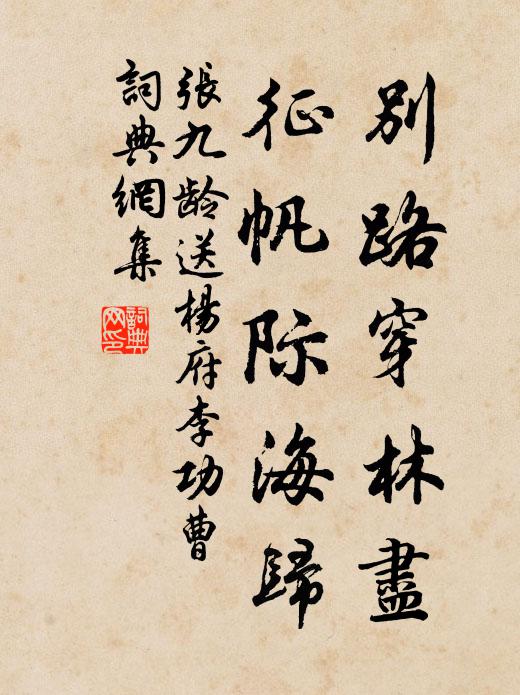 別路穿林盡
征帆际海歸
張九龄送楊府李功曹
詞典網集
詞典网印